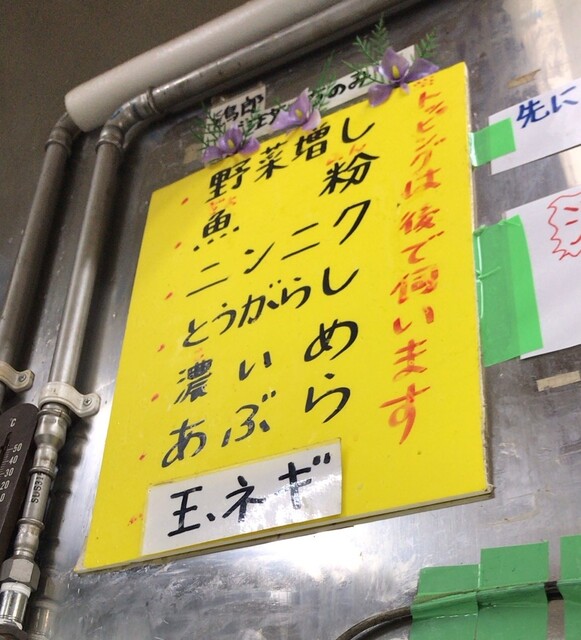 トッピングは後で伺います
野菜増し
魚粉
ニンニク
とうがらし
濃いめ
あぶら
玉ネギ
先に
℃
50
40
30
20